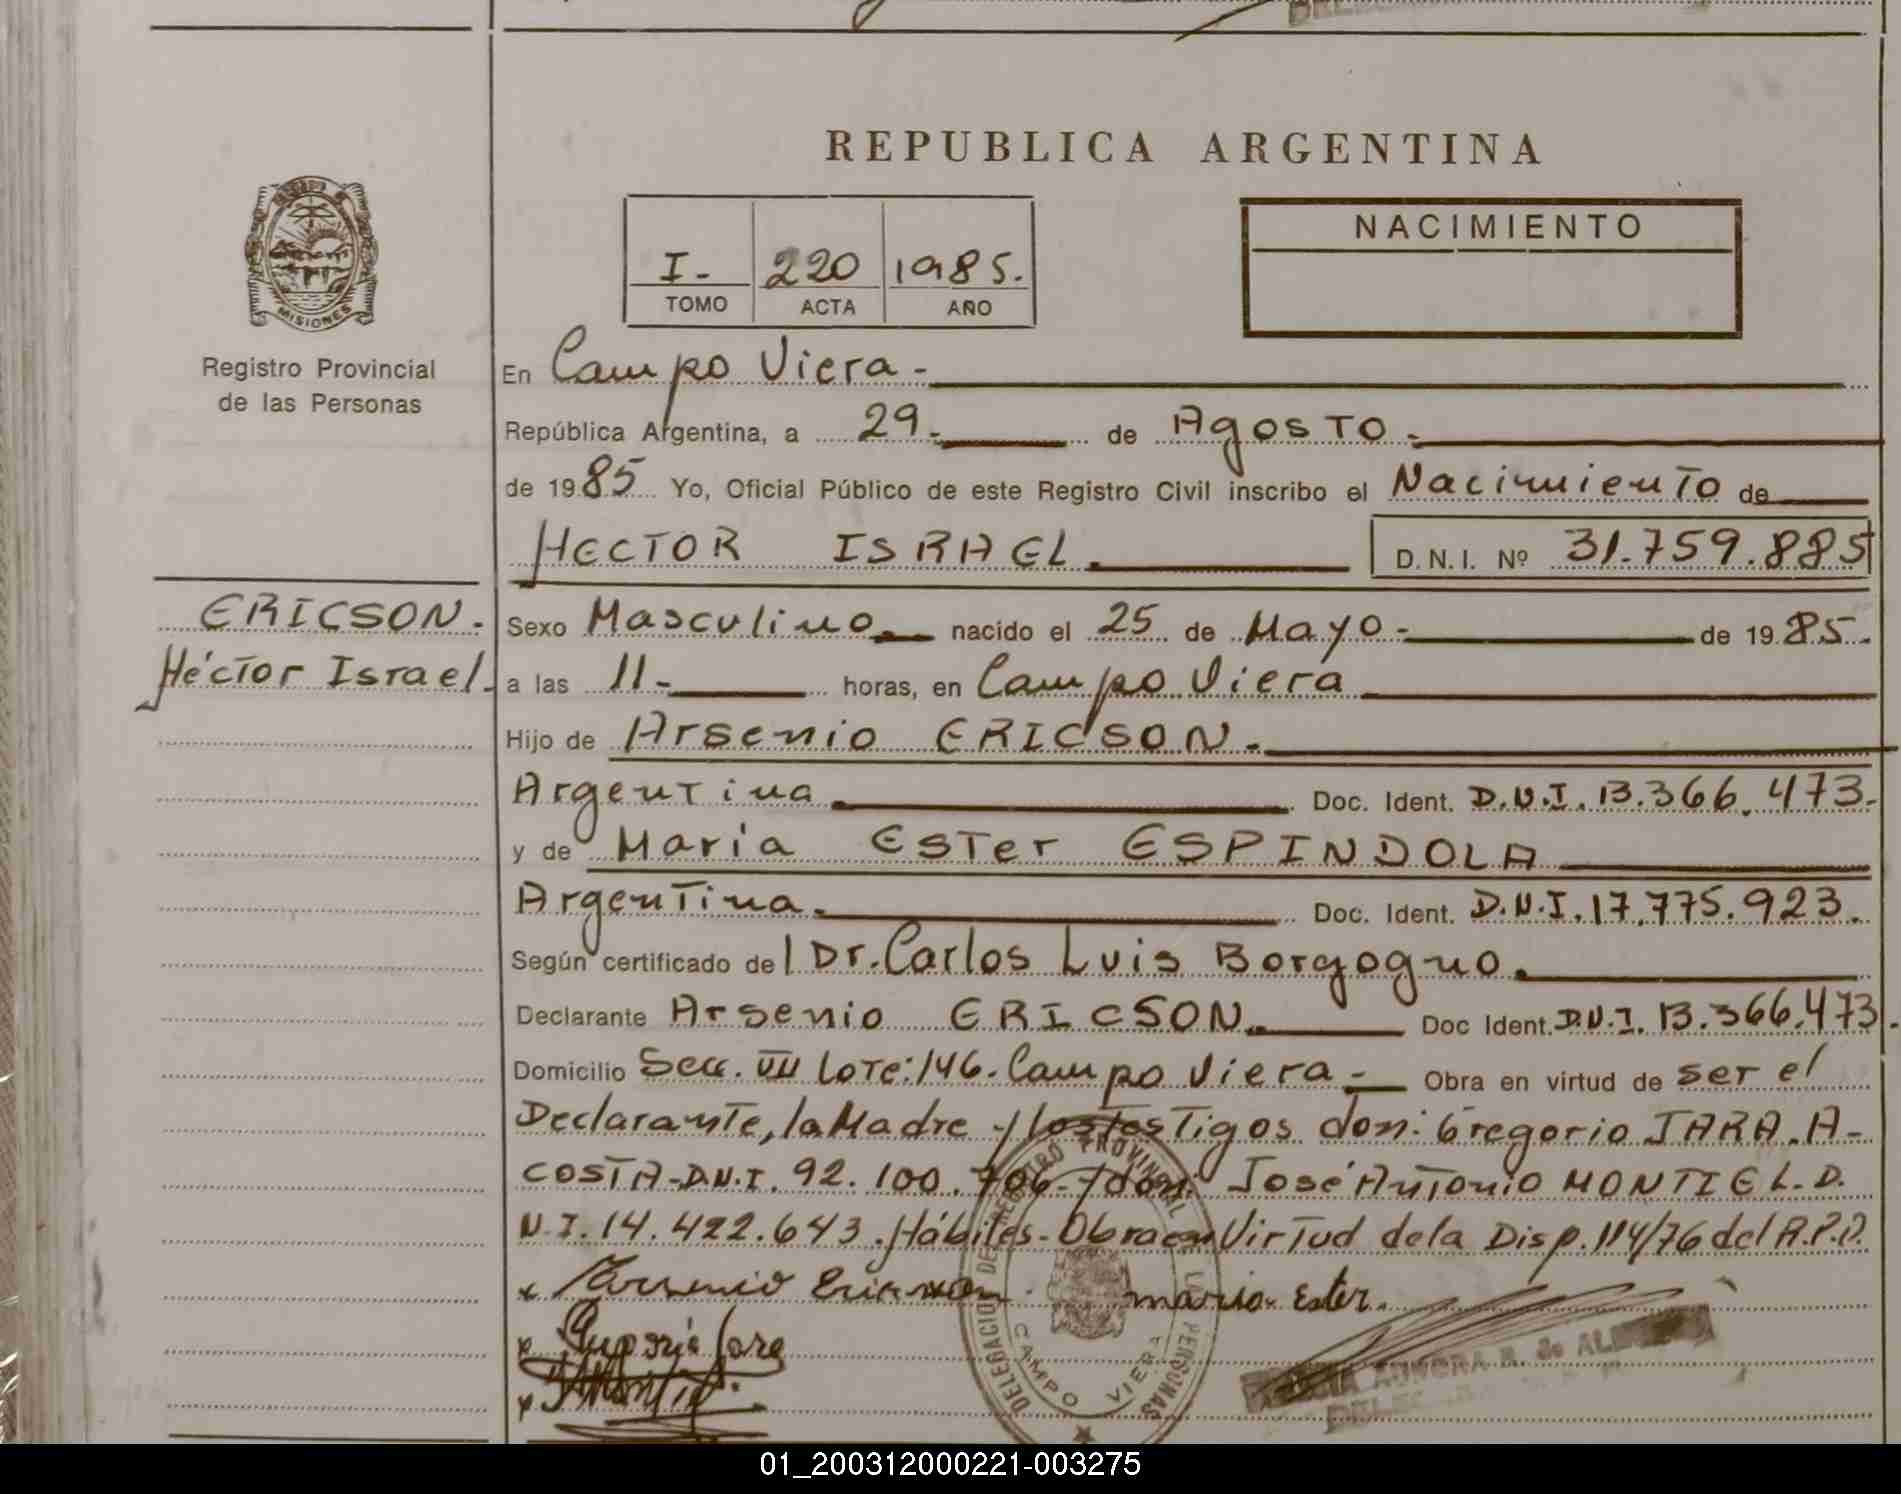 REPUBLICA ARGENTINA
I- 220 1985.
TOMO ACTA AÑO
NACIMIENTO
MISIONES
Registro Provincial
de las Personas
En Campo Viera -
República Argentina, a 29- de Agosto -
de 1985 Yo, Oficial Público de este Registro Civil inscribo el Nacimiento de
HECTOR ISRAEL. D.N.I. Nº 31.759.885
ERICSON.
Héctor Israel.
Sexo Masculino nacido el 25 de Mayo - de 1985.
a las 11- horas, en Campo Viera
Hijo de Arsenio ERICSON.
Argentina Doc. Ident. D.N.I. 13.366.473.
y de Maria Ester ESPINDOLA
Argentina. Doc. Ident. D.N.I. 17.775.923.
Según certificado del Dr. Carlos Luis Borgogno.
Declarante Arsenio ERICSON. Doc Ident. D.N.I. 13.366.473.
Domicilio Secc. VII Lote: 146. Campo Viera - Obra en virtud de ser el
Declarante, la Madre y los testigos don: Gregorio JARA. A-
COSTA-D.N.I. 92.100.706- y don: José Antonio MONTIEL. D.
N.I. 14.422.643. Hábiles- Obra en Virtud de la Disp. 114/76 del R.P.P.
x Arsenio Ericsson maria Ester.
DELEGACIO DE REGISTRO PROVINCIAL DE LAS PERSONAS
CAMPO VIERA
AURORA R. de
01_200312000221-003275